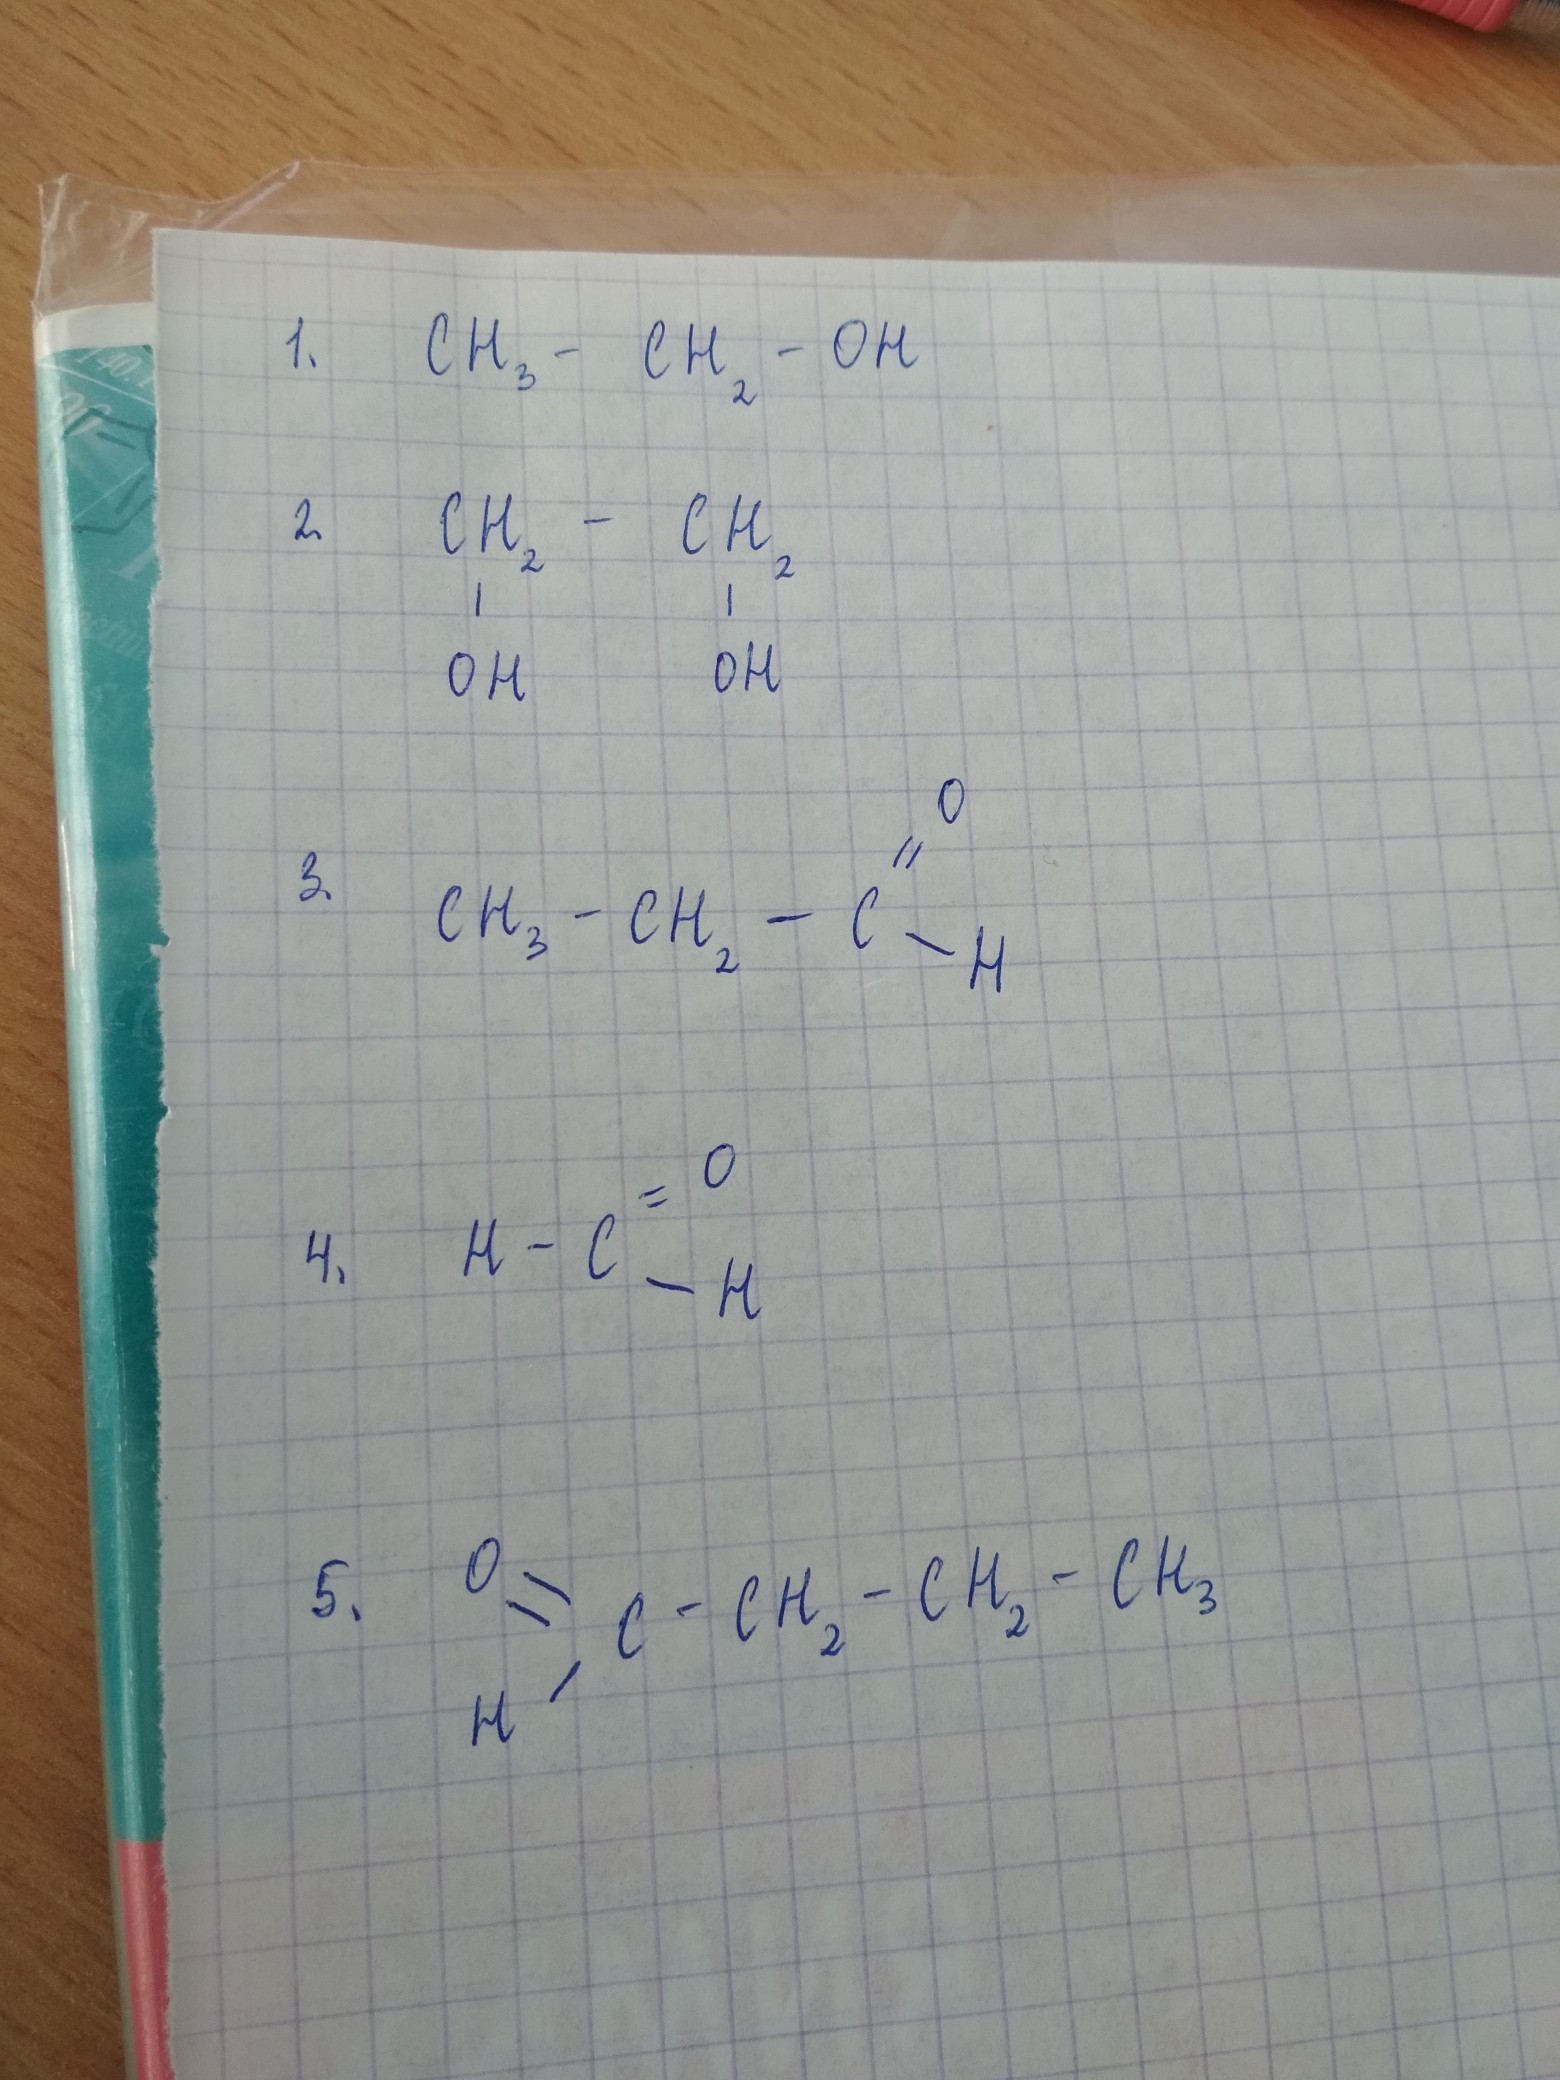 1. CH₃ - CH₂ - OH
2. CH₂ - CH₂
OH OH
O
3. CH₃ - CH₂ - C = O
- H
4. H - C = O
- H
5. O = C - CH₂ - CH₂ - CH₃
H